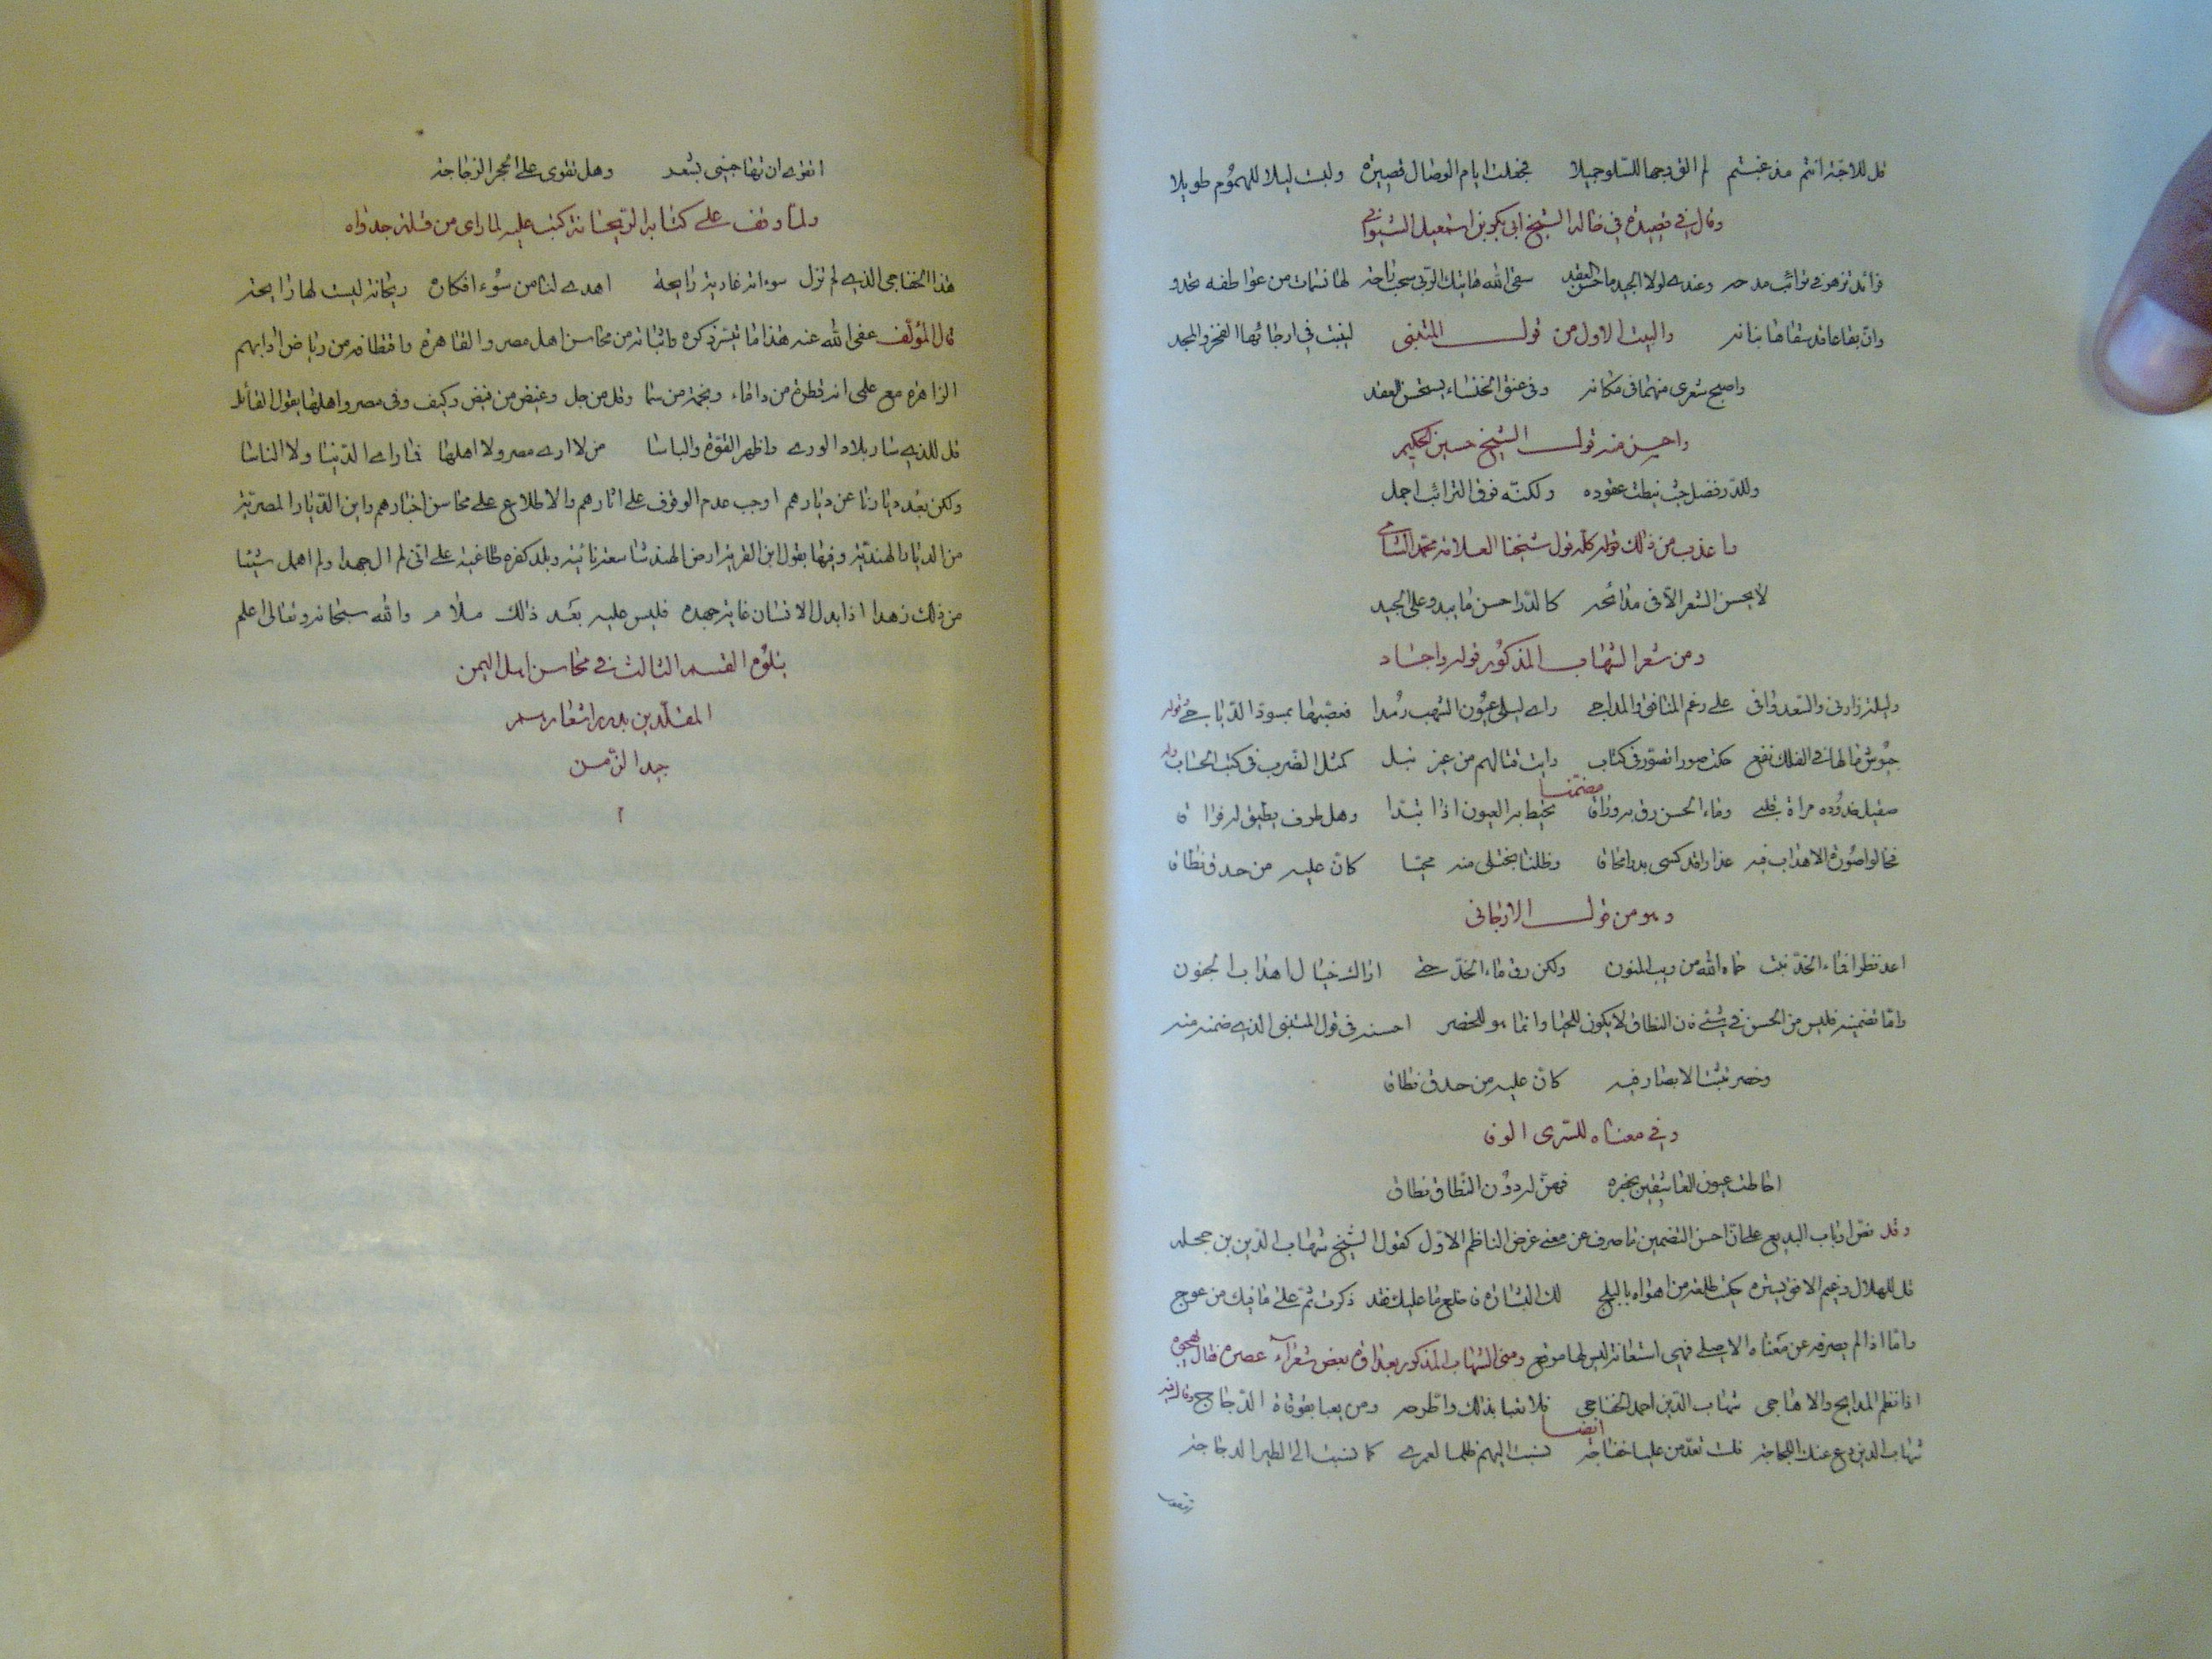 قل للاحبّة انتم مذ غبتم لم الق وجها للسّلو جميلا فجعلت ايام الوصال قصيرة ولبست ليلا للهموم طويلا
وقال في قصيدة في خاله الشيخ ابي بكر بن اسمعيل الشنواني
فرائد تزهو في ترائب مدحه وعندي لولا الجيد ما حسن العقد سقى الله هاتيك الربى سحب راحة لها نسمات من عواطفه تحدو
وان بقاعا قد سقاها بنانه لينبت في ارجائها الفخر والمجد والبيت الاول من قول المتنبى
واصبح شعرى منهما في مكانه وفي عنق الحسناء يستحسن العقد
واحسن منه قول الشيخ حسين الحكيم
وللدّر فضل حيث نيطت عقوده ولكنّه فوق الترائب اجمل
واعذب من ذلك قوله كله قول شيخنا العلامة محمد الشامي
لا يحسن الشعر الّا في مدائحه كالدّر احسن ما يبدو على الجيد
ومن شعر الشهاب المذكور قوله واجاد
وليلة زارني والسعد وافى على رغم المنافق والمداجى راى ليلى عيون الشهب رمدا فعصّبها بمسودّ الدّياجى وقوله
جيوش ما لها في الفلك نفع حكت صورا تصوّر في كتاب رايت قتالهم من غير نيل كمثل الضرب في كتب الحساب وله
مضمّنا
صقيل خدوده مراة قلبى وماء الحسن رق به وراق يحيط به العيون اذا تبدا وهل طرف يطيق له فراق
فخالوا صورة الاهداب فيه عذارا قد كسى بدرا محاق وظلنا نجتلى منه محيّا كانّ عليه من حدق نطاق
وهو من قول الارجاني
اعد نظرا فما في الخدّ نبت حماه الله من ريب المنون ولكن رق ماء الخدّ حتى اراك خيال اهداب الجفون
وامّا تضمينه فليس من الحسن في شئ فان النطاق لا يكون للمحيا وانما هو للخصر احسنه في قول المتنبى الذي ضمنه منه
وخصر تثبت الابصار فيه كانّ عليه من حدق نطاق
وفي معناه للسرى الرفا
احاطت عيون العاشقين بخصره فهنّ له دون النّطاق نطاق
وقد نصّ ارباب البديع على انّ احسن التضمين ما صرف عن معنى غرض الناظم الاوّل كقول الشيخ شهاب الدّين بن حجله
قل للهلال وغيم الافق يستره حكيت طلعة من اهواه بالبلج لك البشارة فاخلع ما عليك فقد ذكرت ثمّ على ما فيك من عوج
وامّا اذا لم يصرفه عن معناه الاصلى فهي استعانة ليس لها موقع ومنى الشهاب المذكور بعداوة بعض شعرآء عصره فقال يهجوه
اذا نظم المدايح والاهاجى شهاب الدّين احمد الخفاجى فلا تعبا بذلك واطّرحه ومن يعبا بقوقاة الدّجاج وقال فيه
ايضا
شهاب الدين دع عنك اللجاجة فلست تعدّ من عليا خفاجة نسبت اليهم ظلما لعمرى كما نسبت الى الطير الدجاجة
اتقوى ان تهاجينى بشعر وهل تقوى على الحجر الزجاجة
ولمّا وقف على كتابه الرّيحانة كتب عليه لما راى من قلة جدواه
هذا الخفاجى الذي لم تزل سوءاته غادية رايحة اهدى لنا من سوء افكاره ريحانة ليست لها رايحة
قال المؤلّف عفى الله عنه هذا ما تيسّر ذكره واثباته من محاسن اهل مصر والقاهرة واقتطافه من رياض ادابهم
الزاهرة مع علمى انه قطرة من داماء ونجمة من سما وقل من جل وغيض من فيض وكيف وفي مصر واهلها يقول القائل
قل للذي سار بلاد الورى واظهر القوة والباسا من لا ارى مصر ولا اهلها فما راى الدّنيا ولا الناسا
ولكن بعد ديارنا عن ديارهم اوجب عدم الوقوف على اثارهم والاطلاع على محاسن اخبارهم واين الدّيار المصرية
من الديار الهنديّة وفيها يقول ابن القرية ارض الهند شاسعة نائية وبلد كفرة طاغية على اني لم ال جهدا ولم اهمل شيئا
من ذلك زهدا اذا بذل الانسان غاية جهده فليس عليه بعد ذلك ملام والله سبحانه وتعالى اعلم
يتلوه القسم الثالث في محاسن اهل اليمن
المقلّدين بدرر اشعارهم
جيد الزّمن